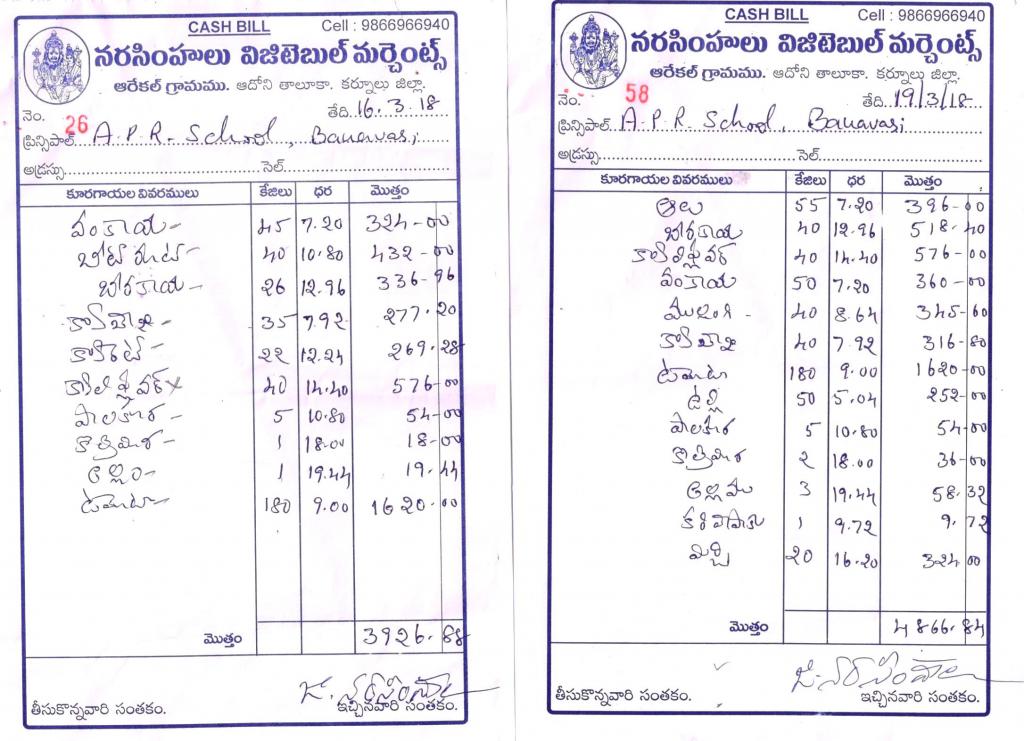 CASH BILL Cell : 9866966940
నరసింహులు విజిటెబుల్ మర్చెంట్స్
ఆరేకల్ గ్రామము. ఆదోని తాలూకా. కర్నూలు జిల్లా.
నెం. 26 తేది. 16.3.18
ప్రిన్సిపాల్ A.P.R. School, Banavasi
అడ్రస్సు సెల్
కూరగాయల వివరములు కేజీలు ధర మొత్తం
వంకాయ - 45 7.20 324-00
బీట్ రూట్ - 40 10.80 432-00
బీరకాయ - 26 12.96 336-96
35 7.92 277.20
క్యారెట్ - 22 12.24 269.28
40 14.40 576-00
పాలకూర - 5 10.80 54-00
కొత్తిమీర - 1 18.00 18-00
అల్లం - 1 19.44 19.44
టమోటా - 180 9.00 1620.00
మొత్తం 3926.88
తీసుకొన్నవారి సంతకం. ఇచ్చినవారి సంతకం.
CASH BILL Cell : 9866966940
నరసింహులు విజిటెబుల్ మర్చెంట్స్
ఆరేకల్ గ్రామము. ఆదోని తాలూకా. కర్నూలు జిల్లా.
నెం. 58 తేది. 19/3/18
ప్రిన్సిపాల్ A.P.R. School, Banavasi
అడ్రస్సు సెల్
కూరగాయల వివరములు కేజీలు ధర మొత్తం
ఆలు 55 7.20 396-00
బీరకాయ 40 12.96 518.40
40 14.40 576-00
వంకాయ 50 7.20 360-00
ముల్లంగి - 40 8.64 345-60
40 7.92 316-80
టమోటా 180 9.00 1620-00
50 5.04 252-00
పాలకూర 5 10.80 54-00
కొత్తిమీర 2 18.00 36-00
అల్లము 3 19.44 58.32
కరివేపాకు 1 9.72 9.72
మిర్చి 20 16.20 324.00
మొత్తం 4866.84
తీసుకొన్నవారి సంతకం. ఇచ్చినవారి సంతకం.